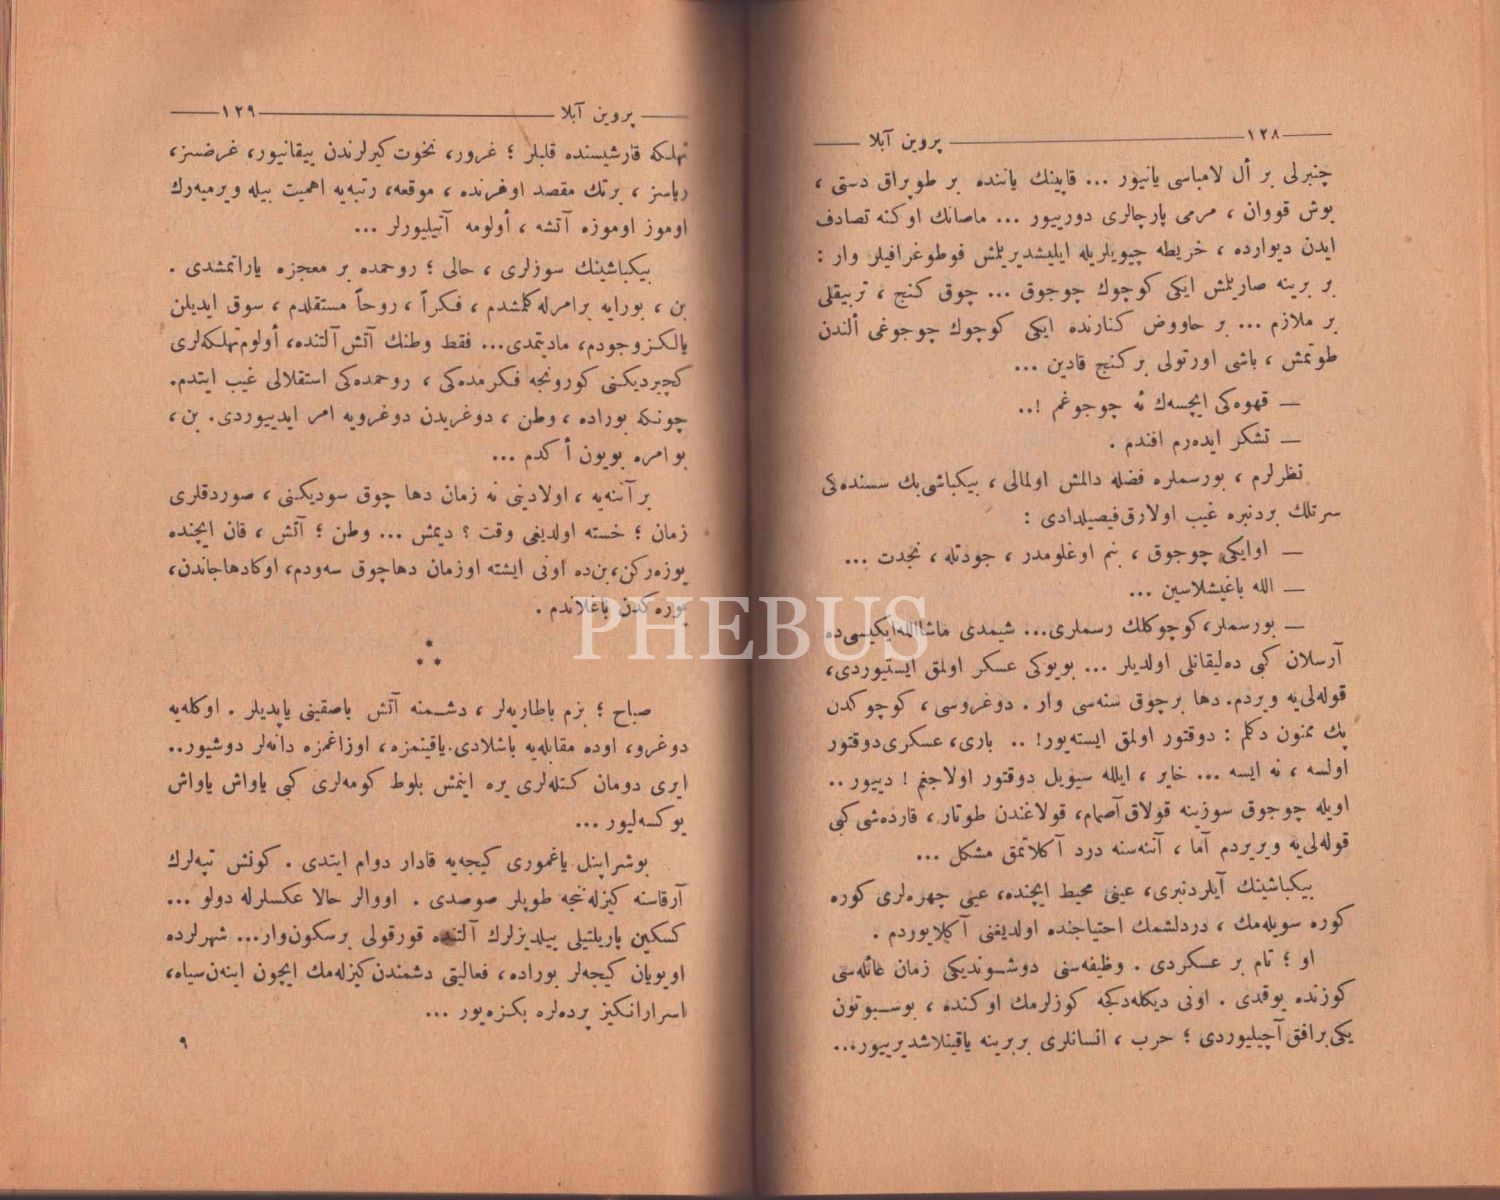 ١٢٨ پروین آبلا
چنبرلی بر أل لامباسی یانیور ... قاپینك یاننده بر طوپراق دستی ،
بوش قووان ، مرمی پارچالری دورییور ... ماصانك اوكنه تصادف
ایدن دیوارده ، خریطه چیویلریله ایلیشدیرلمش فوطوغرافیلر وار :
بر برینه صارلمش ایكی كوچوك چوجوق ... چوق كنج ، تربیقلی
بر ملازم ... بر حاووض كنارنده ایكی كوچوك چوجوغی ألندن
طوتمش ، باشی اورتولی بر كنج قادین ...
— قهوه‌كی ایچسه‌ك ئه چوجوغم !..
— تشكر ایده‌رم افندم .
نظرلرم ، بورسملره فضله دالمش اولمالی ، بیكباشی بك سسنده‌كی
سرتلك بردنبره غیب اولارق فیصیلدادی :
— اوایكی چوجوق ، بنم اوغلومدر ، جودتله ، نجدت ...
— الله باغیشلاسین ...
— بورسملر، كوچوكلك رسملری... شیمدی ماشاالله ایكیسی ده
آرسلان كبی ده‌لیقانلی اولدیلر ... بویوكی عسكر اولمق ایستیوردی،
قوله‌لی‌یه ویردم. دها برچوق سنه‌سی وار . دوغروسی ، كوچوكدن
پك ممنون دكلم : دوقتور اولمق ایسته‌یور! .. باری، عسكری دوقتور
اولسه ، نه ایسه ... خایر ، ایلله سیویل دوقتور اولاجغم ! دییور ..
اویله چوجوق سوزینه قولاق آصمام، قولاغندن طوتار ، قارده‌شی كبی
قوله‌لی‌یه ویریردم آما ، آننه‌سنه درد آكلاتمق مشكل ...
بیكباشینك آیلردنبری، عینی محیط ایچنده، عینی چهره‌لری كوره
كوره سویله‌مك ، دردلشمك احتیاجنده اولدیغنی آكلایوردم .
او ؛ تام بر عسكردی . وظیفه‌سنی دوشوندیكی زمان عائله‌سی
كوزنده یوقدی . اونی دیكله‌دكجه كوزلرمك اوكنده ، بوسبوتون
یكی برافق آچیلیوردی ؛ حرب ، انسانلری بربرینه یاقینلاشدیرییور...
١٢٩ پروین آبلا
تهلكه قارشیسنده قلبلر ؛ غرور، نخوت كیرلرندن ییقانیور، غرضسز،
ریاسز ، برتك مقصد اوغرنده ، موقعه، رتبه‌یه اهمیت بیله ویرمیه‌رك
اوموز اوموزه آتشه ، أولومه آتیلیورلر ...
بیكباشینك سوزلری ، حالی ؛ روحمده بر معجزه یاراتمشدی .
بن ، بورایه برامرله كلمشدم ، فكراً ، روحاً مستقلدم ، سوق ایدیلن
یالكز وجودم، مادیتمدی... فقط وطنك آتش آلتنده، أولوم تهلكه‌لری
كچیردیكنی كورونجه فكرمده‌كی ، روحمده‌كی استقلالی غیب ایتدم.
چونكه بوراده ، وطن ، دوغریدن دوغرویه امر ایدییوردی. بن ،
بو امره بویون أكدم ...
بر آننه‌یه ، اولادینی نه زمان دها چوق سودیكنی ، صوردقلری
زمان ؛ خسته اولدیغی وقت ؟ دیمش ... وطن ؛ آتش ، قان ایچنده
یوزه‌ركن، بن‌ده اونی ایشته اوزمان دها چوق سه‌ودم، اوكا دها جاندن،
یوره‌كدن باغلاندم .
* * *
صباح ؛ بزم باطاریه‌لر ، دشمنه آتش باصقینی یاپدیلر . اوكله‌یه
دوغرو، اوده مقابله‌یه باشلادی. یاقینمزه، اوزاغمزه دانه‌لر دوشیور..
ایری دومان كتله‌لری یره اینمش بلوط كومه‌لری كبی یاواش یاواش
یوكسه‌لیور ...
بوشراپنل یاغموری كیجه‌یه قادار دوام ایتدی . كونش تپه‌لرك
آرقاسنه كیزله‌نجه طوپلر صوصدی . اووالر حالا عكسلرله دولو ...
كسكین پاریلتیلی ییلدیزلرك آلتنده قورقولی برسكون وار... شهرلرده
اویویان كیجه‌لر بوراده، فعالیتی دشمندن كیزله‌مك ایچون اینه‌ن سیاه،
اسرارانكیز پرده‌لره بكزه‌یور ...
٩
PHEBUS